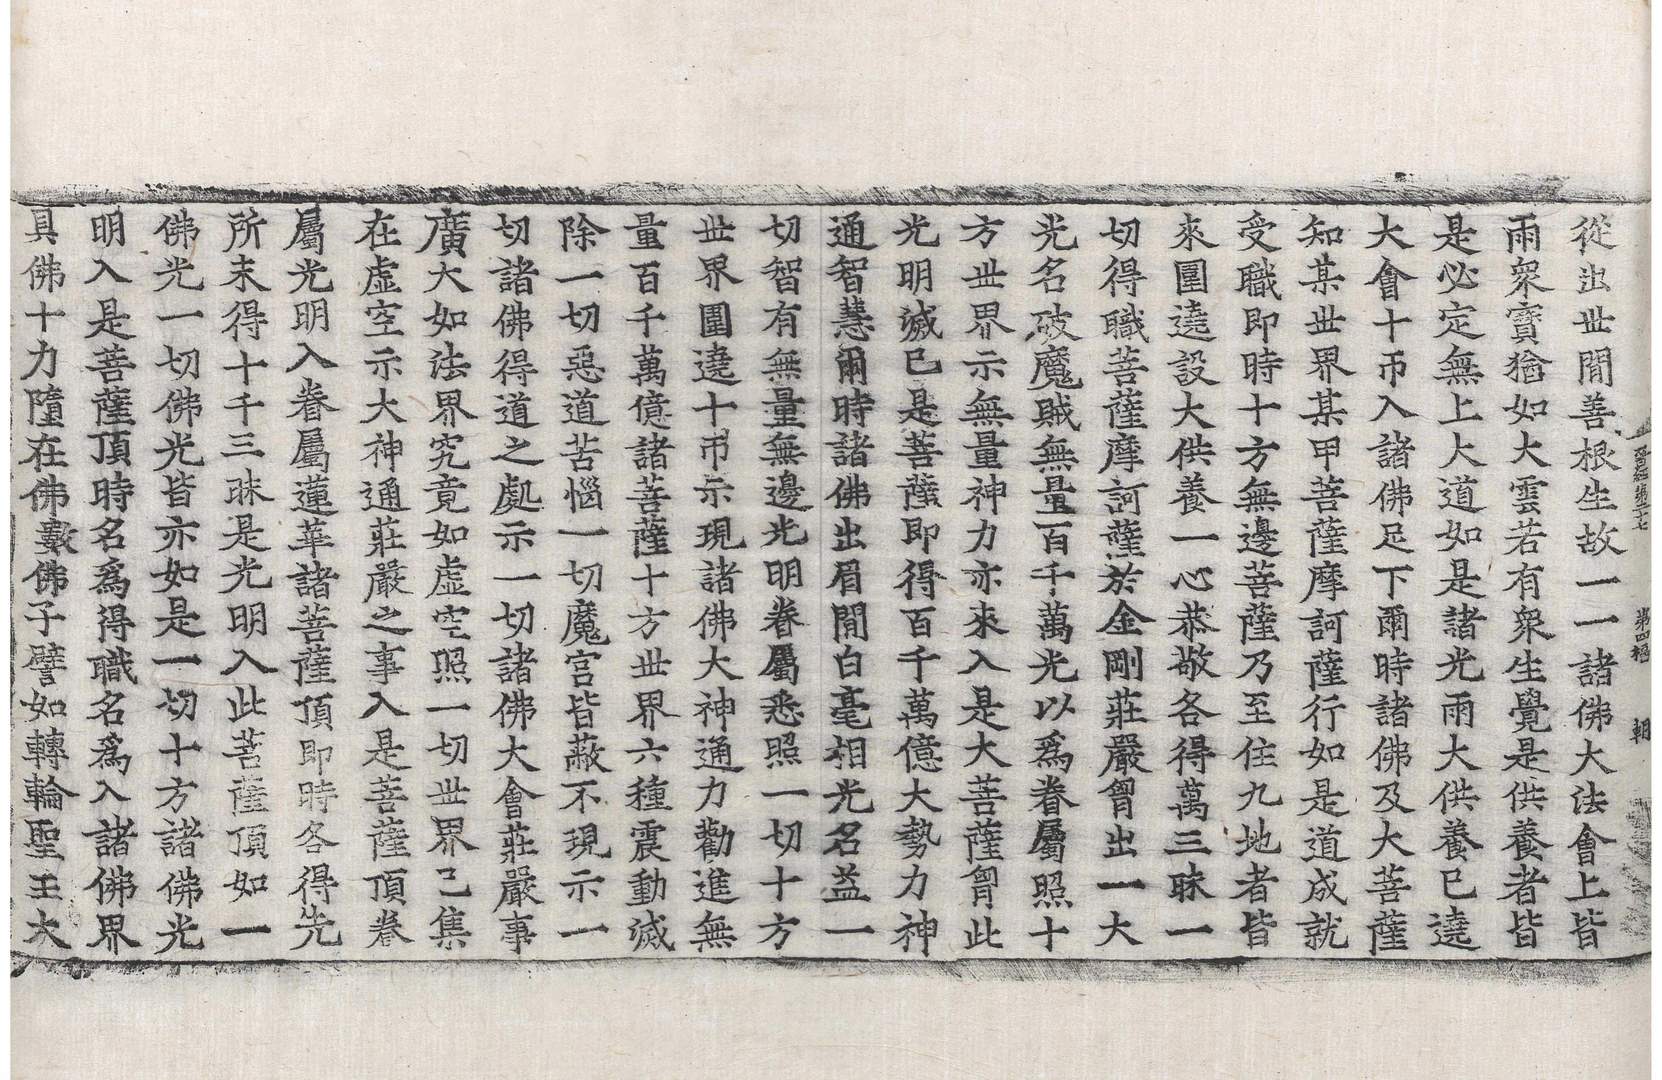 從出世間善根生故一一諸佛大法會上皆
雨衆寶猶如大雲若有衆生覺是供養者皆
是必定無上大道如是諸光雨大供養已遶
大會十帀入諸佛足下爾時諸佛及大菩薩
知某世界某甲菩薩摩訶薩行如是道成就
受職即時十方無邊菩薩乃至住九地者皆
來圍遶設大供養一心恭敬各得萬三昧一
切得職菩薩摩訶薩於金剛莊嚴胷出一大
光名破魔賊無量百千萬光以爲眷屬照十
方世界示無量神力亦來入是大菩薩胷此
光明滅已是菩薩即得百千萬億大勢力神
通智慧爾時諸佛出眉間白毫相光名益一
切智有無量無邊光明眷屬悉照一切十方
世界圍遶十帀示現諸佛大神通力勸進無
量百千萬億諸菩薩十方世界六種震動滅
除一切惡道苦惱一切魔宮皆蔽不現示一
切諸佛得道之處示一切諸佛大會莊嚴事
廣大如法界究竟如虛空照一切世界已集
在虛空示大神通莊嚴之事入是菩薩頂眷
屬光明入眷屬蓮華諸菩薩頂即時各得先
所未得十千三昧是光明入此菩薩頂如一
佛光一切佛光皆亦如是一切十方諸佛光
明入是菩薩頂時名爲得職名爲入諸佛界
具佛十力墮在佛數佛子譬如轉輪聖王太